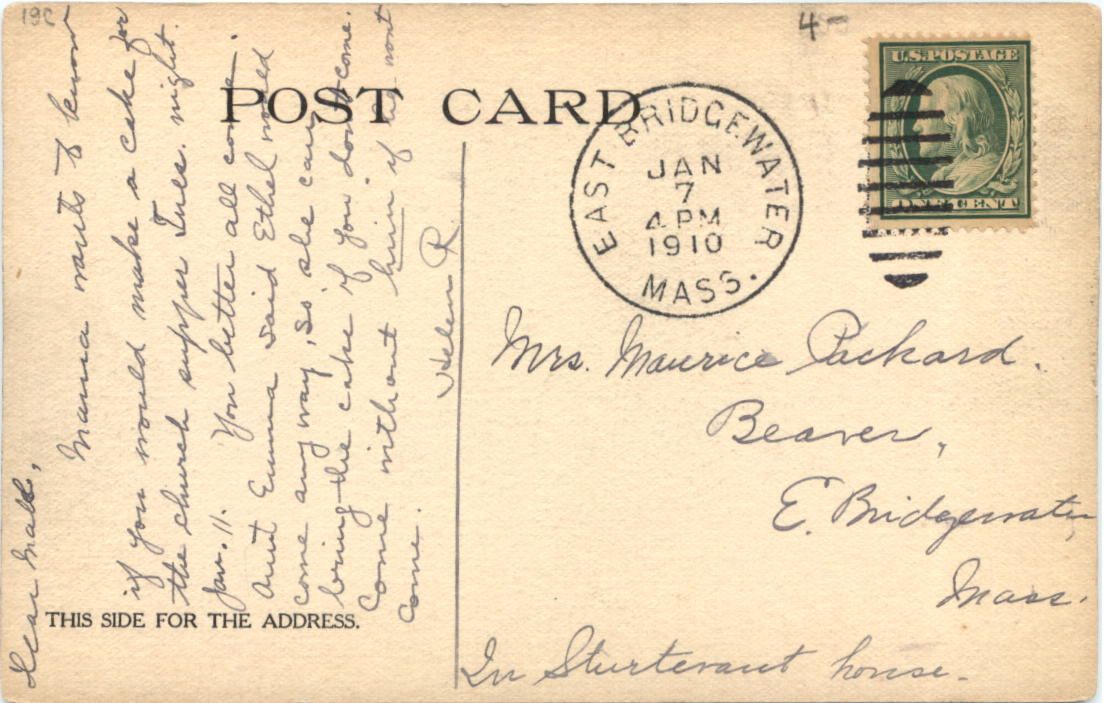 19c
4-
POST CARD
U.S. POSTAGE
ONE CENT
EAST BRIDGEWATER
JAN
7
4 PM
1910
MASS.
Mamma wants to know
if you would make a cake for
the church supper Tues. night.
Jan. 11. You better all come.
Aunt Emma said Ethel could
come any way, so she can
bring the cake if you don't come.
Come without him if he wont
come.
Helen R
Mrs. Maurice Packard.
Beaver,
E. Bridgewater,
Mass.
In Sturtevant house.
THIS SIDE FOR THE ADDRESS.
Dear